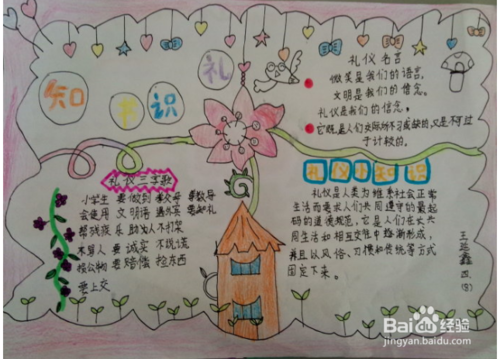 知书识礼
礼仪名言
微笑是我们的语言,
文明是我们的信念。
礼仪是我们的信念。
它既是人们交际所不可或缺的,又是不可过
于计较的。
礼仪三字歌
小学生 要做到 孝父母 尊教导
会使用 文明语 遇外宾 要知礼
帮残疾 乐助人 不打架
不骂人 要诚实 不说谎
损公物 要赔偿 捡东西
要上交
礼仪小知识
礼仪是人类为维系社会正常
生活而要求人们共同遵守的最起
码的道德规范,它是人们在长久
共同生活和相互交往中逐渐形成,
并且以风俗、习惯和传统等方式
固定下来。
四(3)
Baidu经验
jingyan.baidu.com